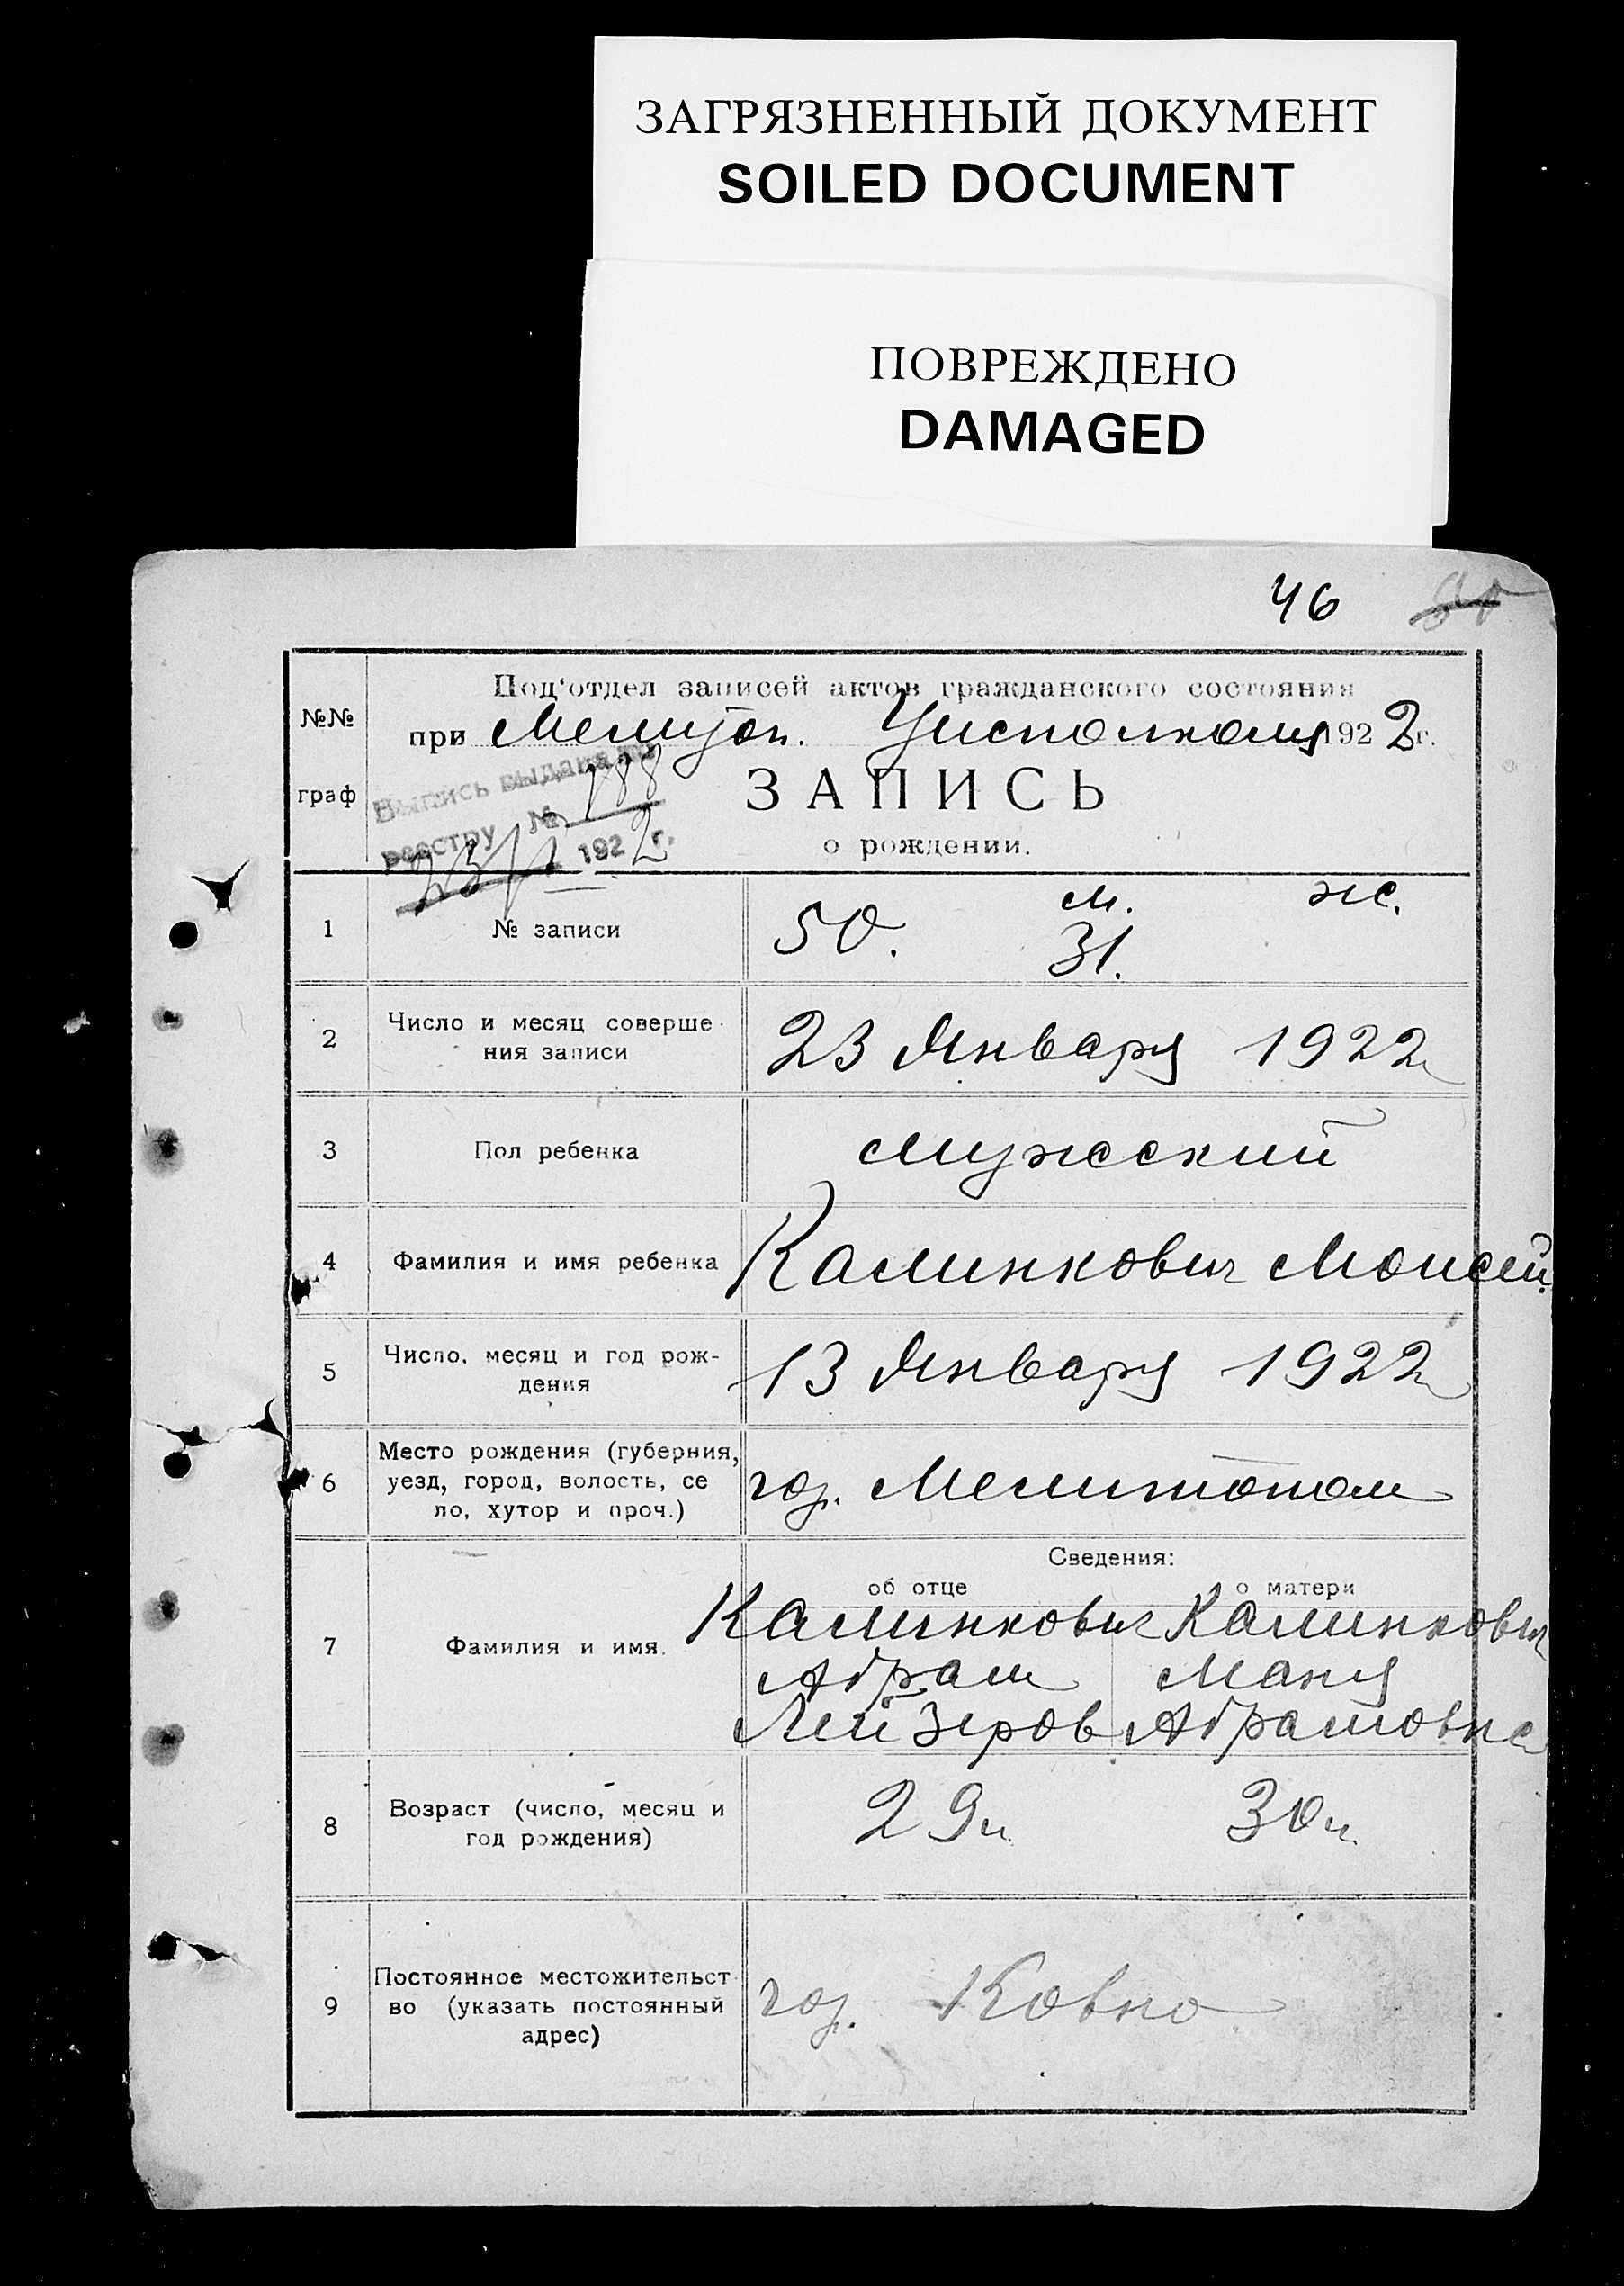 ЗАГРЯЗНЕННЫЙ ДОКУМЕНТ
SOILED DOCUMENT
ПОВРЕЖДЕНО
DAMAGED
46
№№
граф
Под‘отдел записей актов гражданского состояния
при Мелитоп. Уисполкома 1922г.
Выпись выдана по
реестру № 188
23/I 1922 г.
ЗАПИСЬ
о рождении.
1 № записи 50. м. 31. ж.
2 Число и месяц соверше-
ния записи
23 Января 1922
3 Пол ребенка мужеский
4 Фамилия и имя ребенка Калинкович Моисей.
5 Число, месяц и год рож-
дения
13 Января 1922
6 Место рождения (губерния,
уезд, город, волость, се
ло, хутор и проч.)
гор. Мелитополь
Сведения:
об отце о матери
7 Фамилия и имя.
Калинкович Калинкович
Абрам Маня
Лейзеров Абрамовна
8 Возраст (число, месяц и
год рождения)
29л 30л.
9 Постоянное местожительст
во (указать постоянный
адрес)
гор. Ковно